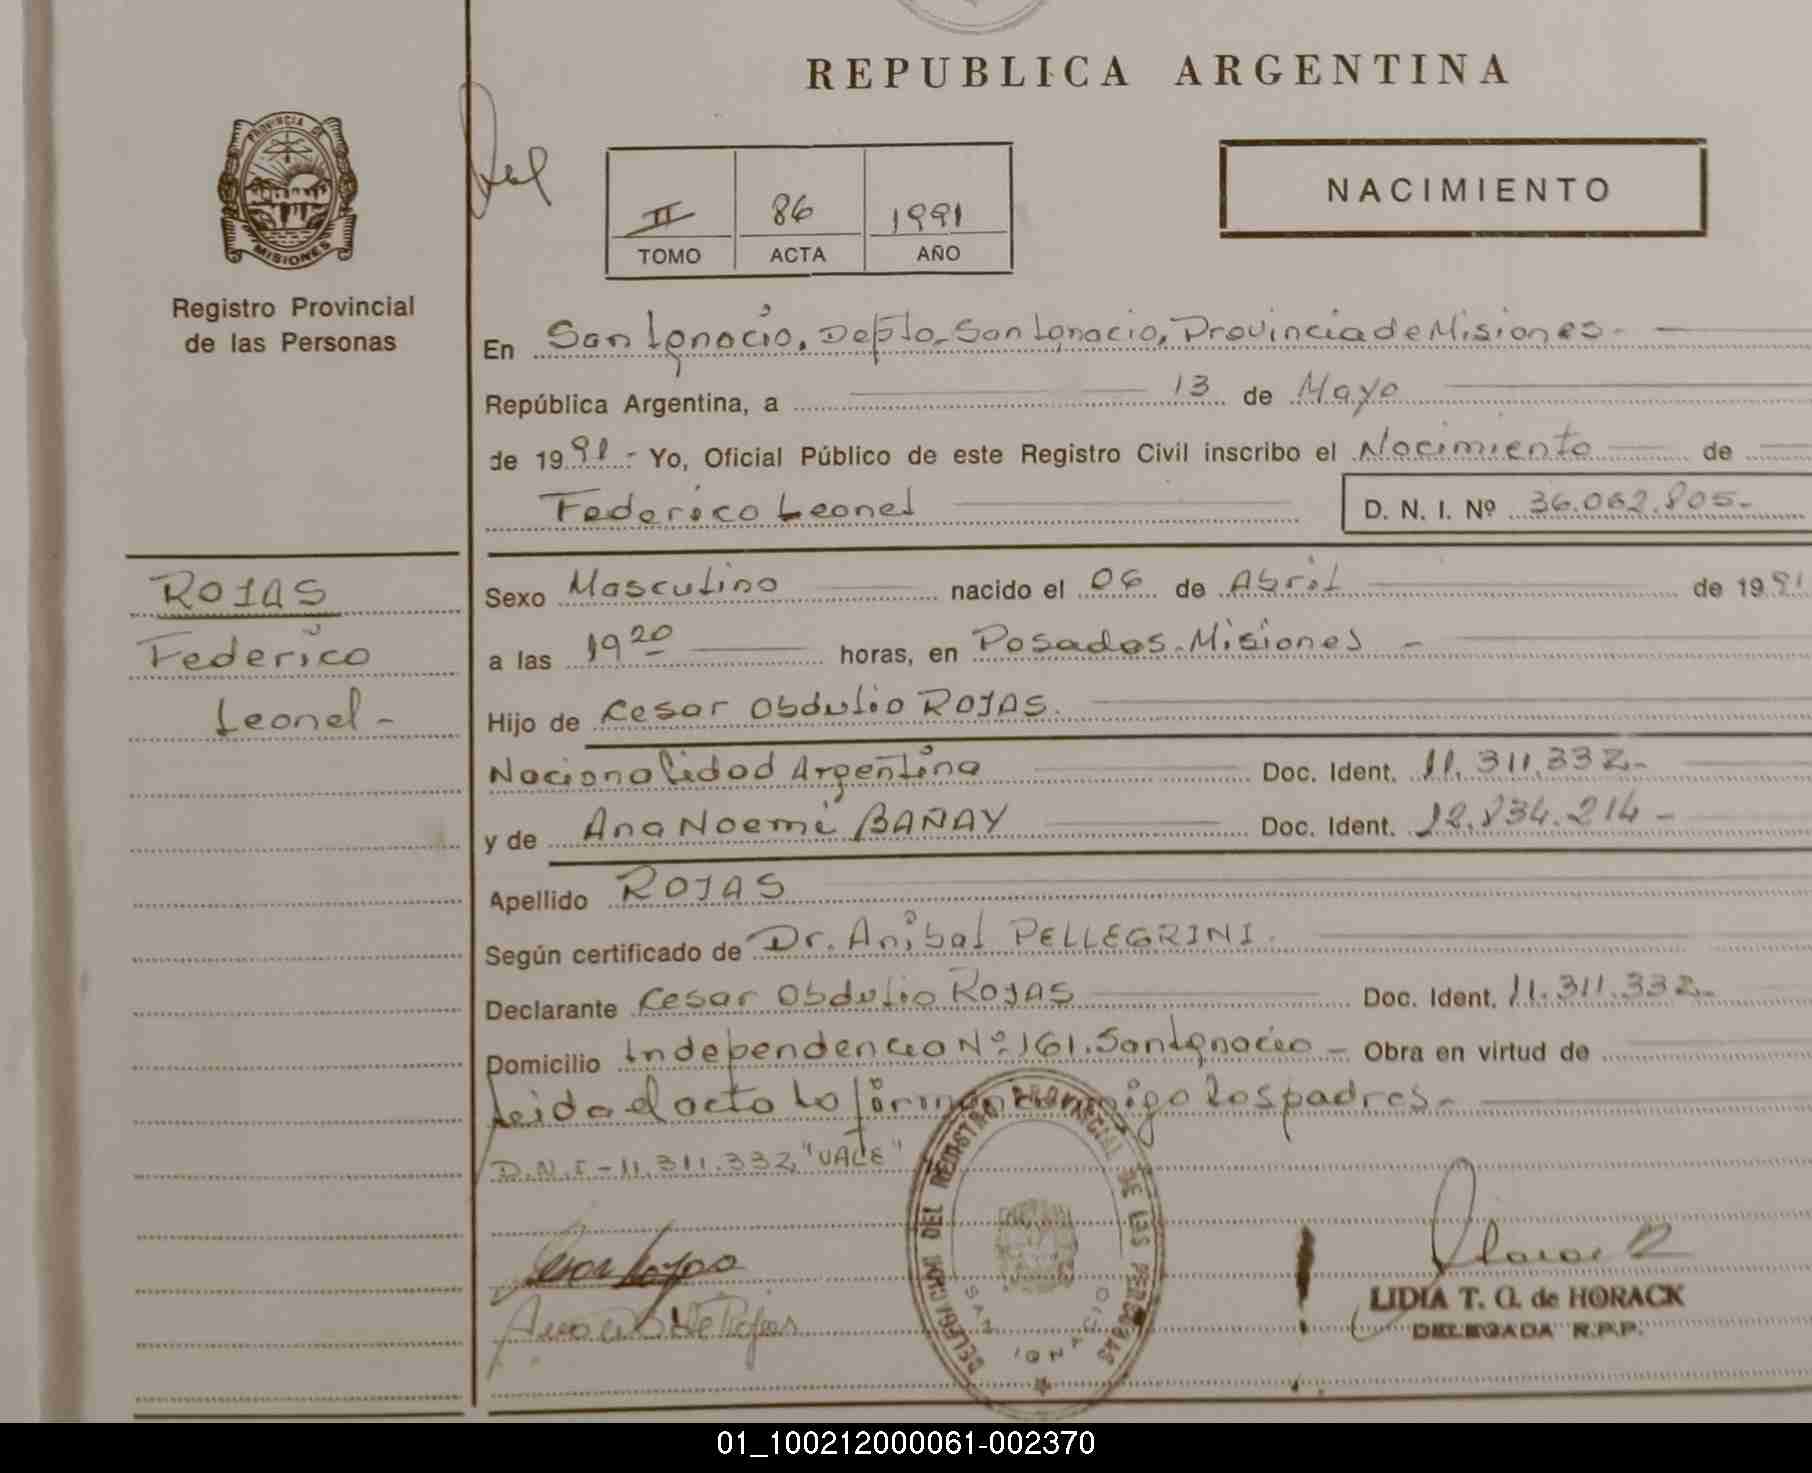 REPUBLICA ARGENTINA
PROVINCIA DE
MISIONES
Registro Provincial
de las Personas
II 86 1991
TOMO ACTA AÑO
NACIMIENTO
En San Ignacio, Depto. San Ignacio, Provincia de Misiones.
República Argentina, a 13 de Mayo
de 1991.- Yo, Oficial Público de este Registro Civil inscribo el Nacimiento de
Federico Leonel D. N. I. Nº 36.062.805-
ROJAS
Federico
Leonel -
Sexo Masculino nacido el 06 de Abril de 1991
a las 19 20 horas, en Posadas-Misiones -
Hijo de Cesar Obdulio ROJAS.
Nacionalidad Argentina Doc. Ident. 11.311.332-
y de Ana Noemi BAÑAY Doc. Ident. 12.834.214-
Apellido ROJAS
Según certificado de Dr. Anibal PELLEGRINI.
Declarante Cesar Obdulio ROJAS Doc. Ident. 11.311.332-
Domicilio Independencia Nº 161. San Ignacio - Obra en virtud de
Leida el acta la firman conmigo los padres-
D.N.I - 11.311.332 "VALE"
DELEGACION DEL REGISTRO PROVINCIAL DE LAS PERSONAS
SAN IGNACIO
LIDIA T. O. de HORACK
DELEGADA R.P.P.
01_100212000061-002370